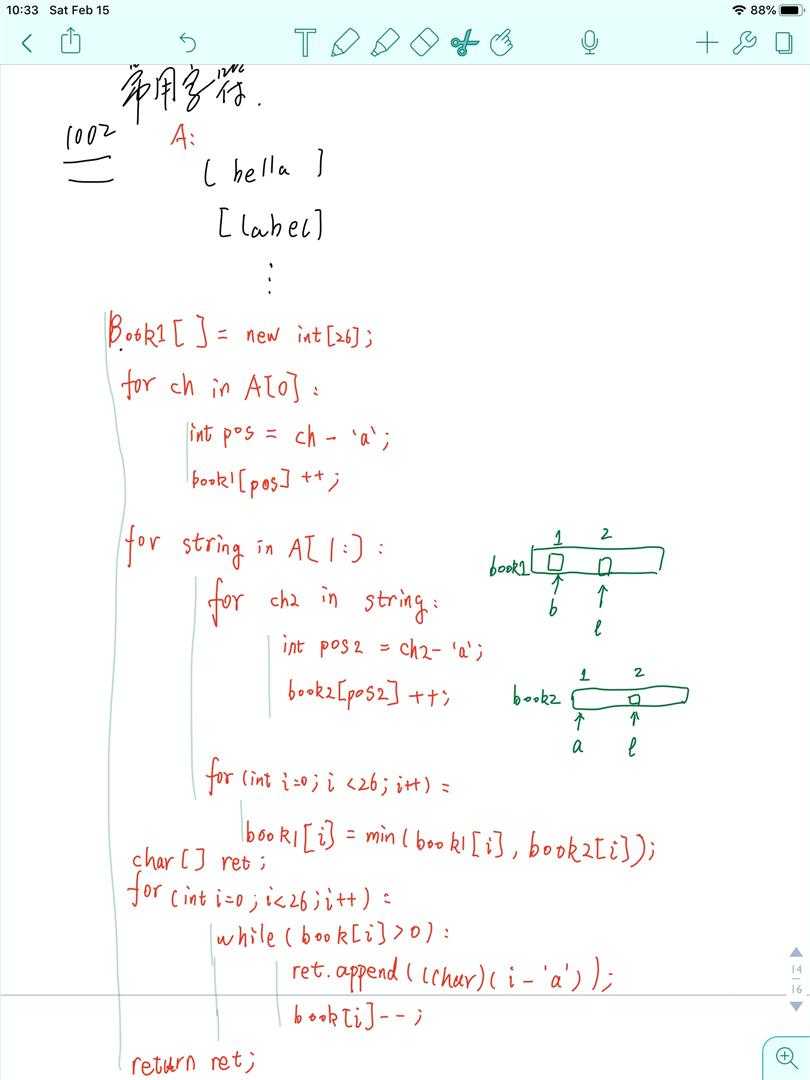 10:33 Sat Feb 15 88%
常用字符.
1002 A:
[bella]
[label]
⋮
Book1[ ] = new int[26];
for ch in A[0]:
int pos = ch - 'a';
book1[pos]++;
for string in A[1:]:
for ch2 in string:
int pos2 = ch2 - 'a';
book2[pos2]++;
1 2
book1
b l
1 2
book2
a l
for (int i=0; i<26; i++) =
book1[i] = min(book1[i], book2[i]);
char[] ret;
for (int i=0; i<26; i++) =
while (book[i]>0):
ret.append((char)(i-'a'));
book[i]--;
return ret;
14
16